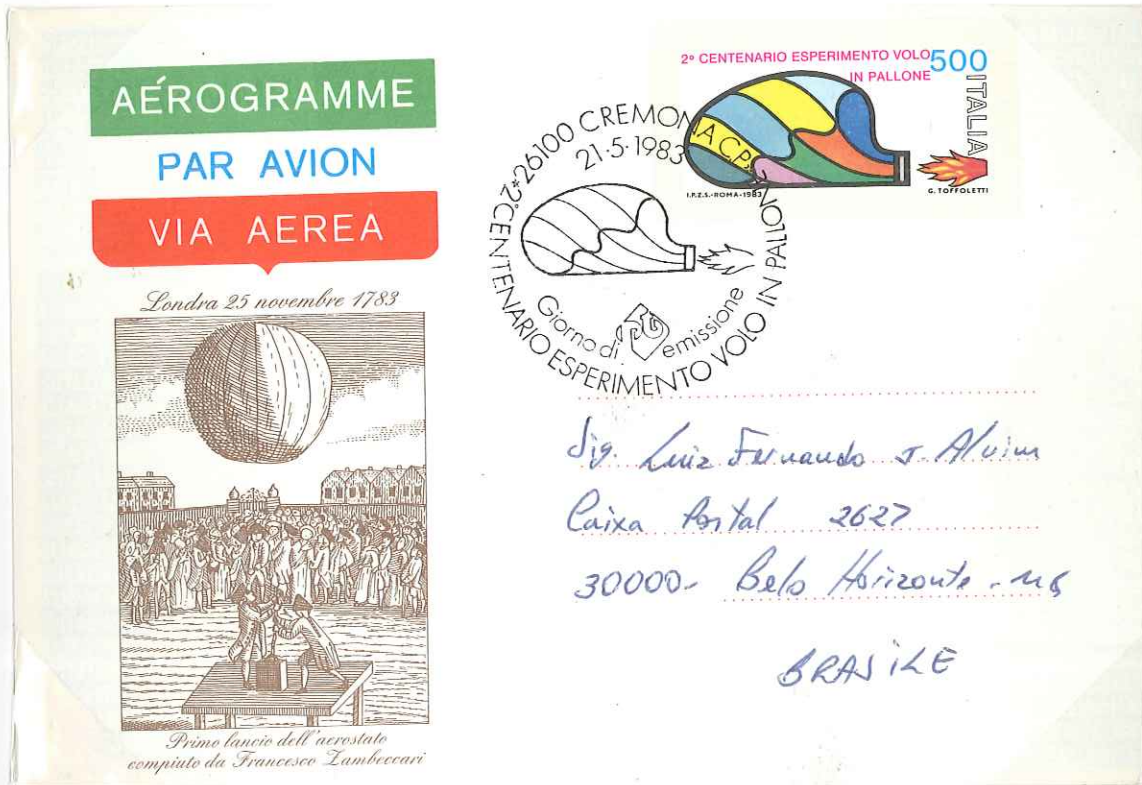 AÉROGRAMME
PAR AVION
VIA AEREA
Londra 25 novembre 1783
Primo lancio dell'aerostato
compiuto da Francesco Zambeccari
2º CENTENARIO ESPERIMENTO VOLO
IN PALLONE
500
ITALIA
I.P.Z.S.-ROMA-1983
G. TOFFOLETTI
*26100 CREMONA C.P.*
21·5·1983
2º CENTENARIO ESPERIMENTO VOLO IN PALLONE
Giorno di emissione
Sig. Luiz Fernando J Alvim
Caixa Postal 2627
30000- Belo Horizonte - MG
BRASILE